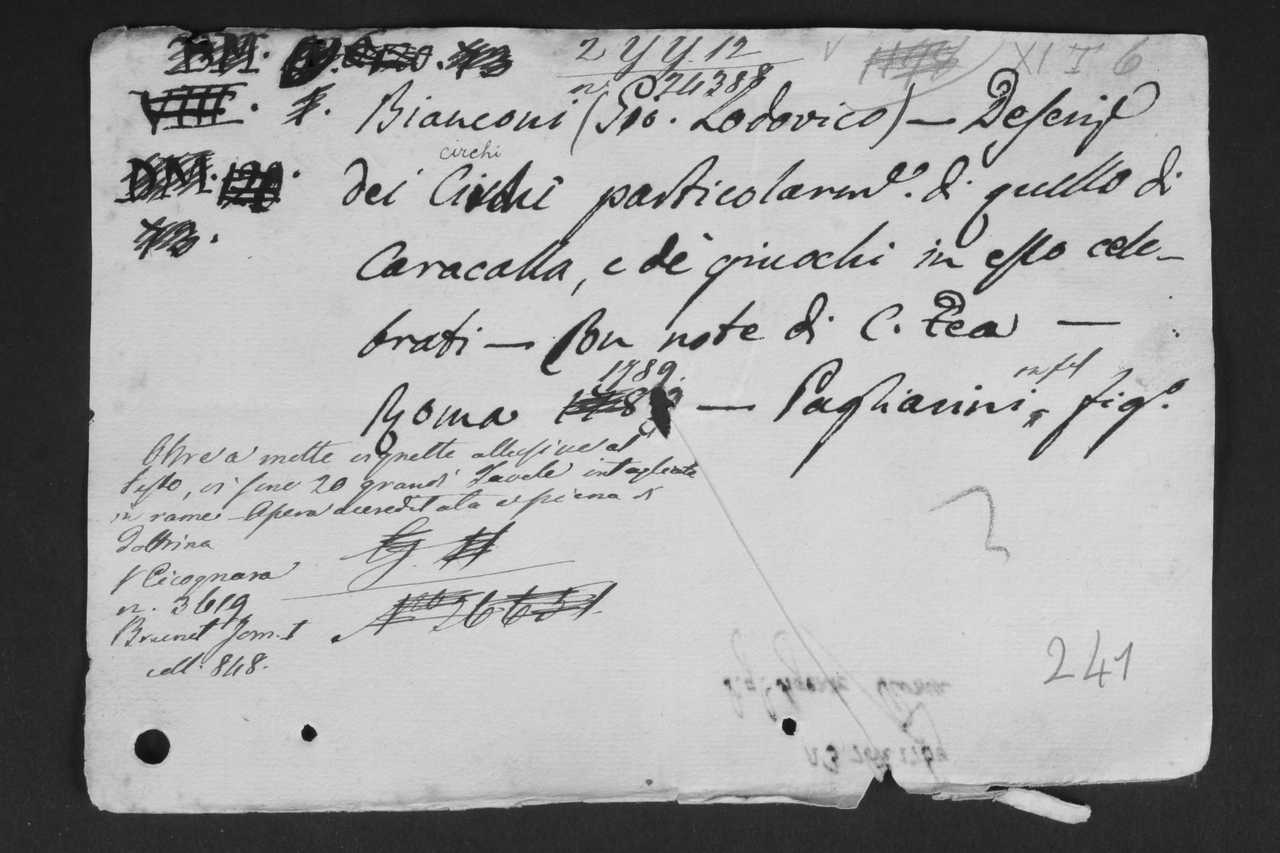 2 Y Y. 12
XI I 6
n. 24388
Bianconi (Gio. Lodovico) — Descriz
circhi
dei Circhi particolarm.e di quello di
Caracalla, e de giuochi in esso cele-
brati — Con note di C. Fea —
1789.
Roma — Pagliarini, in fol fig.o
Oltre a molte vignette allusive al
testo, vi sono 20 grandi Tavole intagliate
in rame - Opera accreditata e piena di
dottrina
Cicognara
n. 3619
Brunet Tom. I
coll. 848.
241